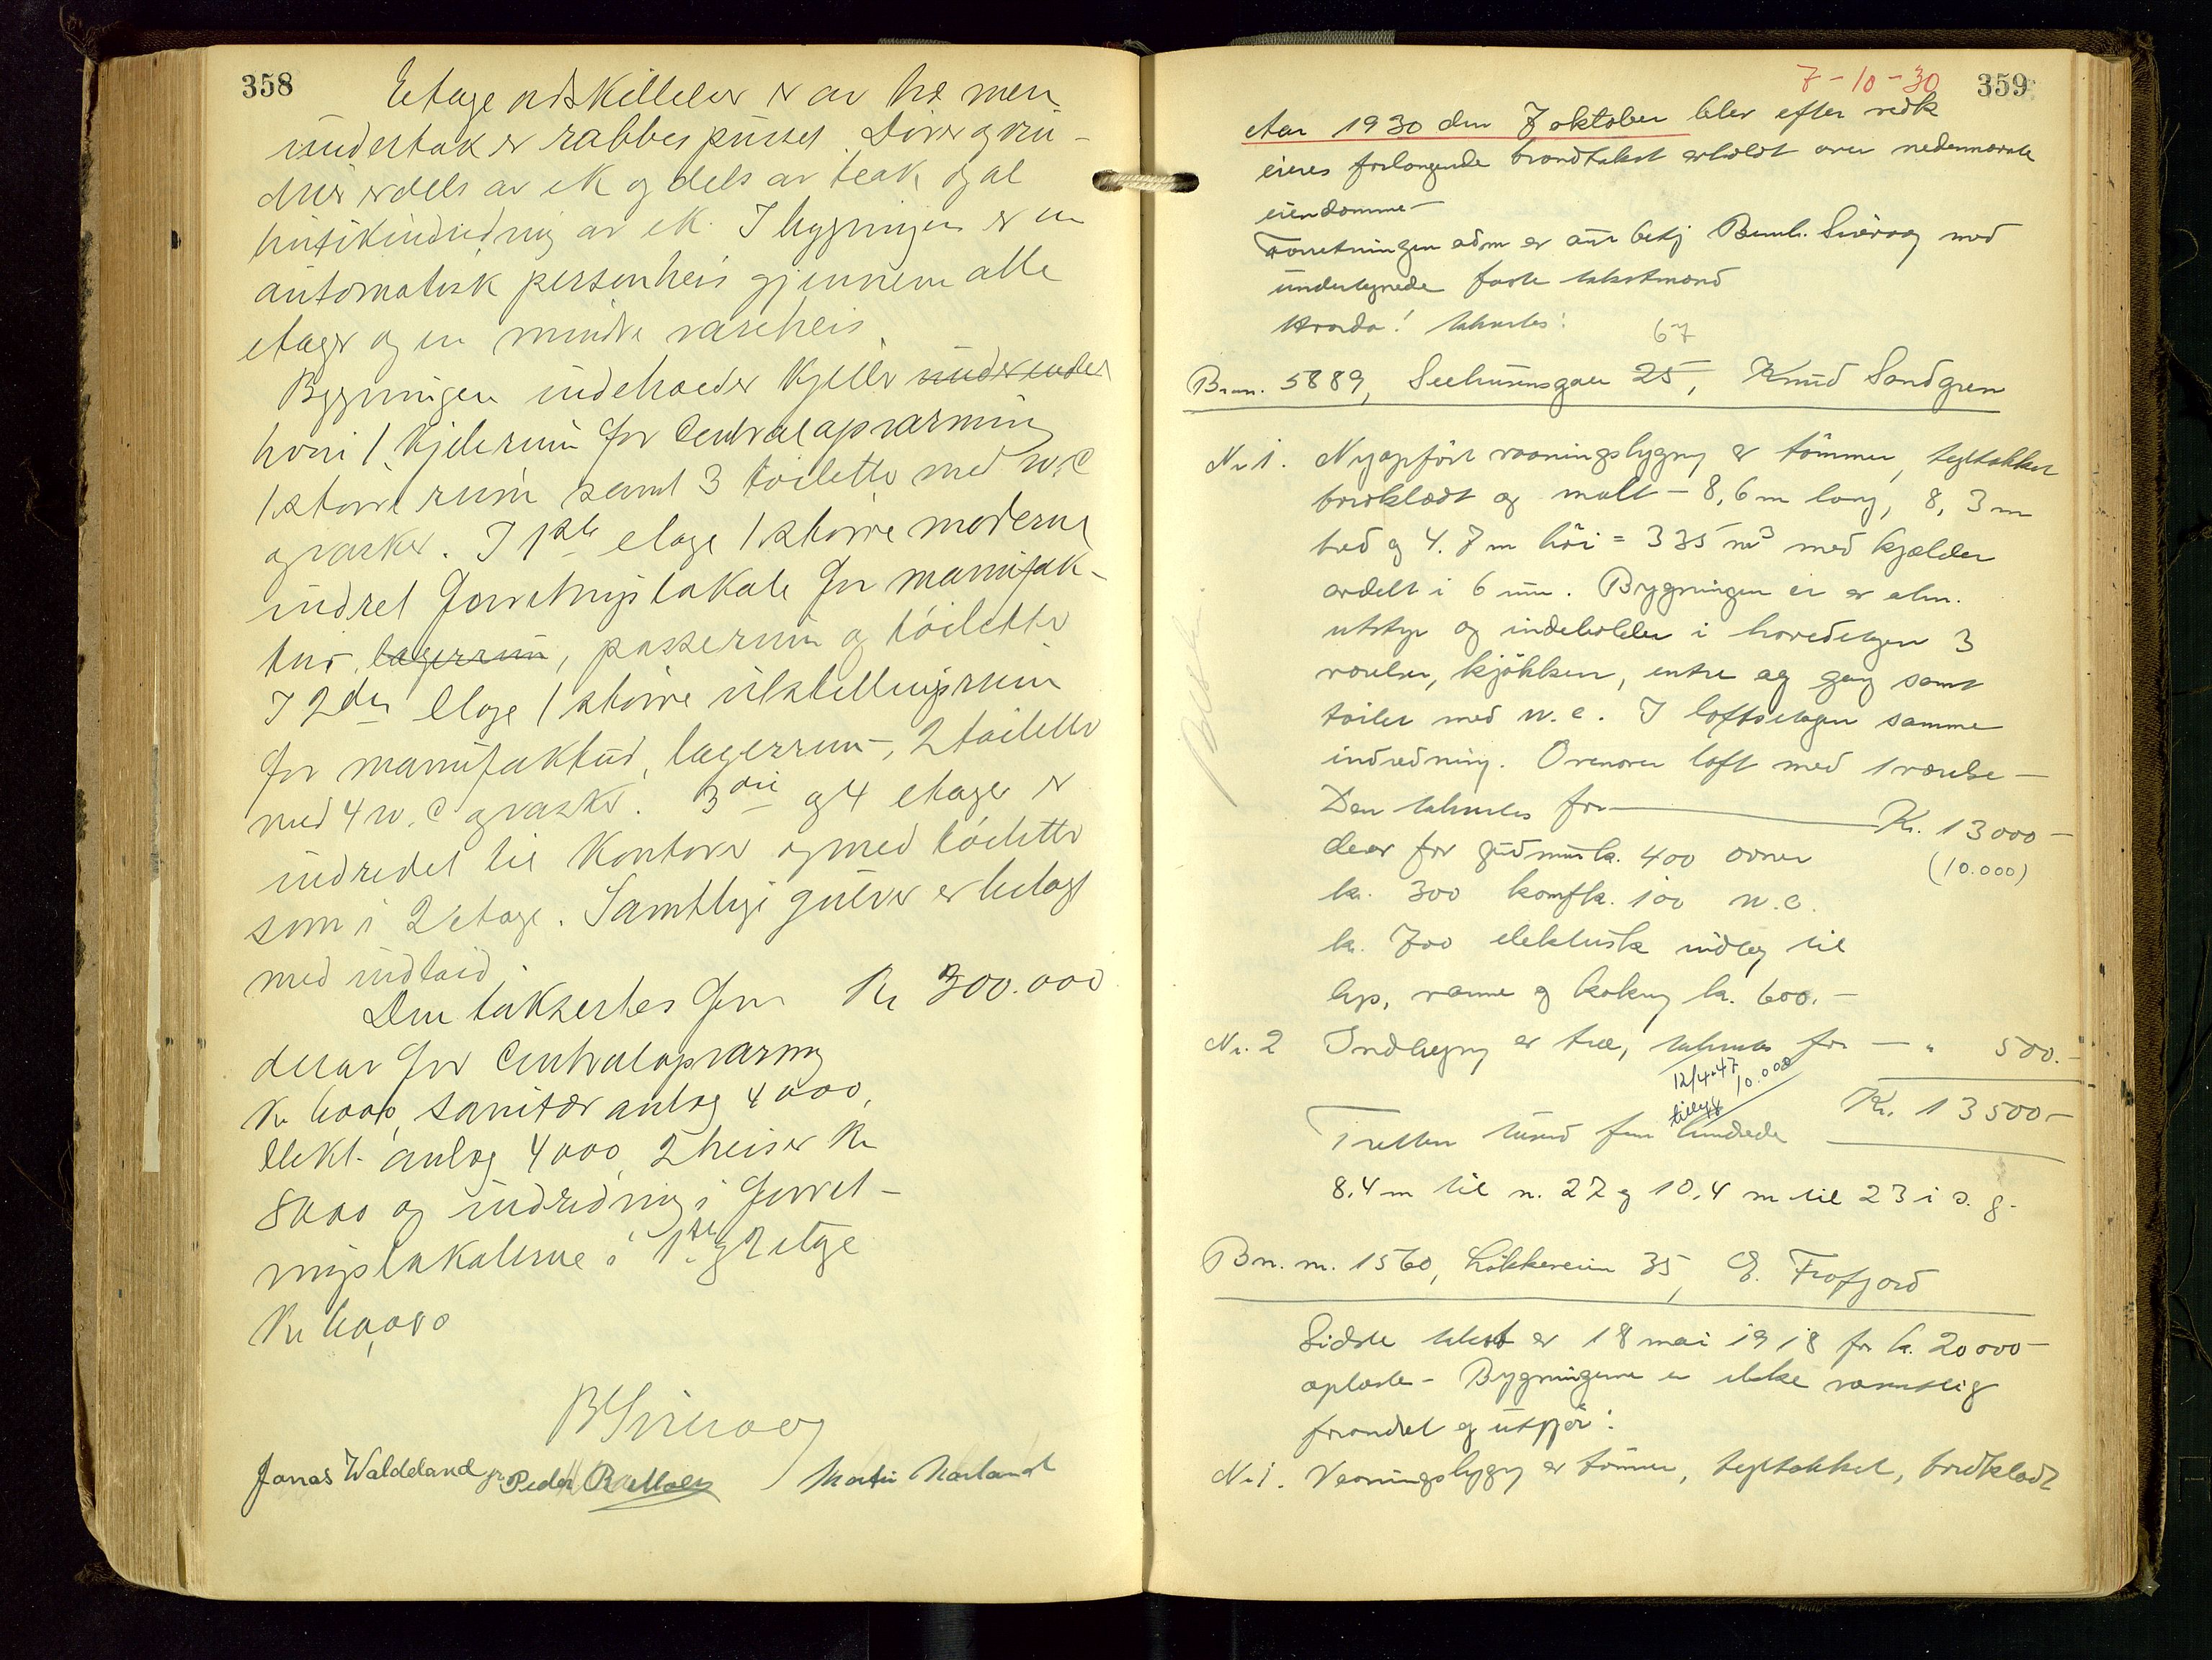 358
Etage adskillelser er av træ men
undertak er rabbespusset. Dører og vin-
duer er dels av ek og dels av teak og al
butikindredning av ek. I bygningen er en
automatisk personheis gjennem alle
etager og en mindre vareheis
Bygningen indeholder kjeller
hvori 1 kjelerum for Centralopvarming
1 større rum samt 3 toiletter med w.c
og vasker. I 1ste etage 1 større moderne
indret forretningslokale for manufak-
tur, lagerrum, pakkerum og toiletter
I 2den Etage 1 større utstillingsrum
for manufaktur, lagerrum, 2 toiletter
med 4 w.c og vasker. 3die og 4 etager er
indredet til Kontorer og med toiletter
som i 2 etage. Samtlige gulver er belagt
med indlaid.
Den takseres for Kr 300.000
derav for Centralopvarmng
Kr 6000, sanitær anlæg 4000,
Elekt. anlæg 4000, 2 heiser Kr
8000 og indredning i forret-
ningslokalerne i 1ste og 2 etage
Kr 60,000
B Sirevaag
Jonas Waldeland jr. Peder Martin Harland
7-10-30 359
Aar 1930 den 7 oktober blev efter vedk
eieres forlangende brandtakst avholdt over nedennævnte
eiendomme -
Forretningen adm av aut betj Bernh. Sirevaag med
undertegnede faste takstmænd
Hvorda! takseres:
67
Br.nr. 5889, Seehusensgate 25, Knud Sandgren
Nr 1. Nyopført vaaningsbygng av tømmer, tegltakket
bordklædt og malt - 8,6 m lang, 8,3 m
bred og 4.7 m høi = 335 m3 med kjælder
avdelt i 6 rum. Bygningen er av alm.
utstyr og indeholder i hovedetagen 3
værelser, kjøkken, entre og gang samt
toilet med w.c. I loftsetagen samme
indredning. Ovenover loft med 1 værelse -
Den takseres for Kr. 13000 -
derav for grundmur kr. 400 ovner (10.000)
kr. 300 komf kr. 100 w.c.
kr. 700 elektrisk indlæg til
lys, varme og kokng kr. 600. -
Nr. 2 Indhegng av træ, takseres for - " 500.-
12/4-47 10.000
tillegg
Kr. 13500 -
Tretten tusind fem hundrede
8.4 m til n. 27 og 10.4 m til 23 i s. g.
Br. nr. 1560, Løkkeveien 35, E. Frafjord
Sidste takst av 18 mai 1918 for kr. 20000 -
oplæstes - Bygningerne er ikke væsentlig
forandret og utgjør:
Nr 1. Vaaningsbygng av tømmer, tegltakket, bordklædt